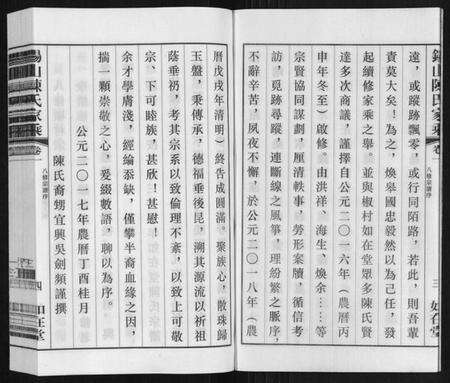 錫山陳氏家乘
卷一
八修宗譜序
三
如在堂
遠，或蹤跡飄零，或行同陌路，若此，則吾輩
責莫大矣！為之，煥皋國忠毅然以為己任，發
起續修家乘之舉。並與椒村如在堂眾多陳氏賢
達多次商議，謹擇自公元二〇一六年（農曆丙
申年冬至）啟修。由洪祥、海生、煥余……等
宗賢協同謀劃，厘清軼事，勞形案牘，循信考
訪，覓跡尋蹤，連斷線之風箏，理紛繁之脈序，
不辭辛苦，夙夜不懈，於公元二〇一八年（農
曆戊戌年清明）終告成圓滿。聚族心，散珠歸
玉盤，秉傳承，德福垂後昆，溯其源流以祈祖
蔭垂礽，考其宗系以致倫理不紊，以致上可敬
宗、下可睦族，甚欣！甚慰！
余才學膚淺，經綸忝缺，僅攀半裔血緣之因，
揣一顆崇敬之心，爰綴數語，聊以為序。
公元二〇一七年農曆丁酉桂月
陳氏裔甥宜興吳劍頻謹撰
錫山陳氏家乘
卷一
八修宗譜序
四
如在堂